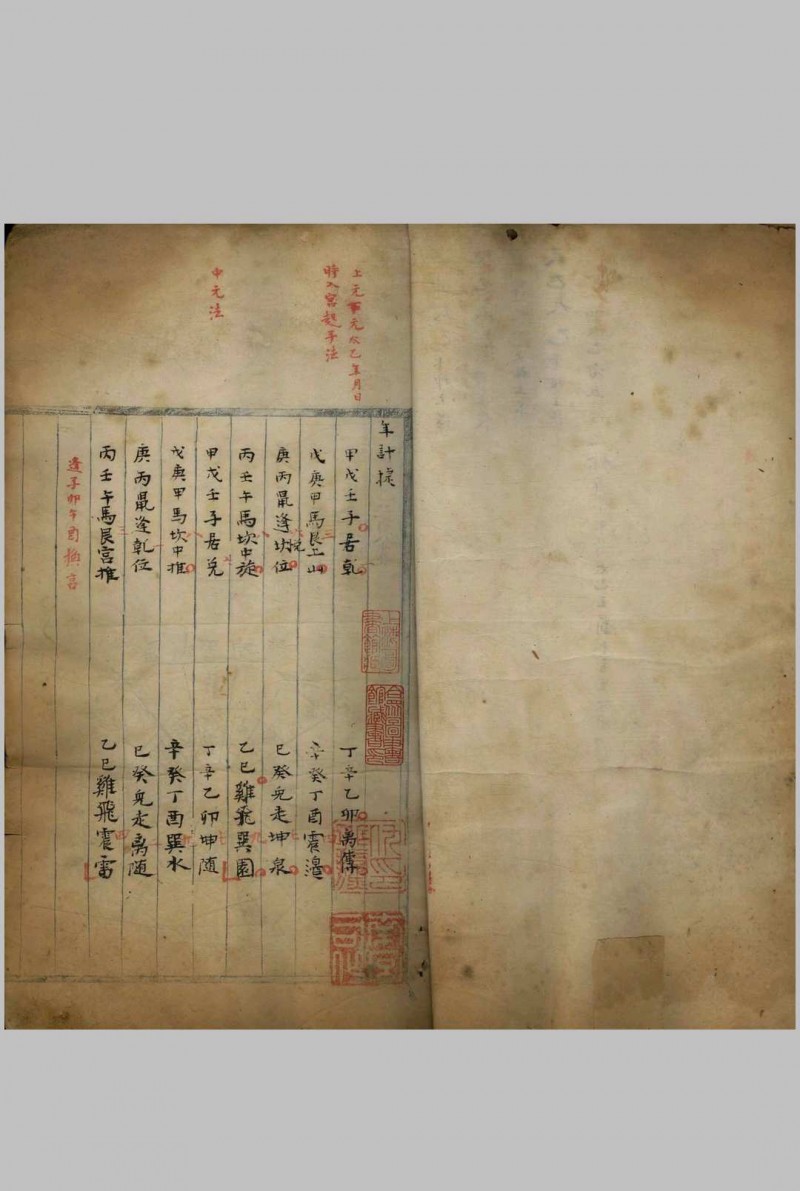 年計捄
上元下元癸乙年月日
時入宮起子法
甲戊壬子居乾 丁辛乙卯离傳
戊庚甲馬艮上山 辛癸丁酉震邊
庚丙鼠逢坎位 巳癸兔走坤泉
丙壬午馬坎中旋 乙巳雞飛巽園
甲戊壬子居兌 丁辛乙卯坤隨
中元法
戊庚甲馬坎中推 辛癸丁酉巽水
庚丙鼠逢乾位 巳癸兔走离隨
丙壬午馬艮宮推 乙巳雞飛震雷
逢子卯午酉換宮